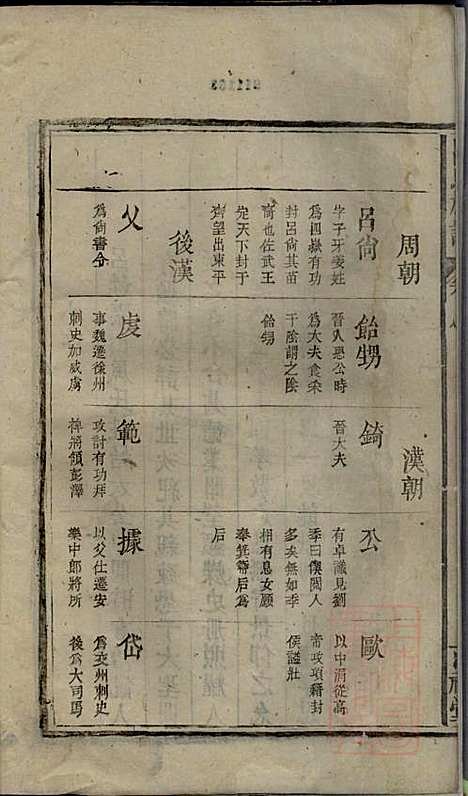 周朝
呂尙
字子牙姜姓
爲四嶽有功
封呂尙其苗
裔也佐武王
定天下封于
齊望出東平
飴甥
晉人惠公時
爲大夫食采
于陰謂之陰
飴甥
錡
晉大夫
漢朝
公
有卓識見劉
季曰僕閱人
多矣無如季
相有息女願
奉箕帚后爲
后
歐
以中涓從高
帝攻項籍封
侯諡壯
後漢
父
爲尙書令
虔
事魏遷徐州
刺史加威虜
範
攻討有功拜
裨將領彭澤
據
以父仕遷安
樂中郎將所
岱
爲交州刺史
後爲大司馬